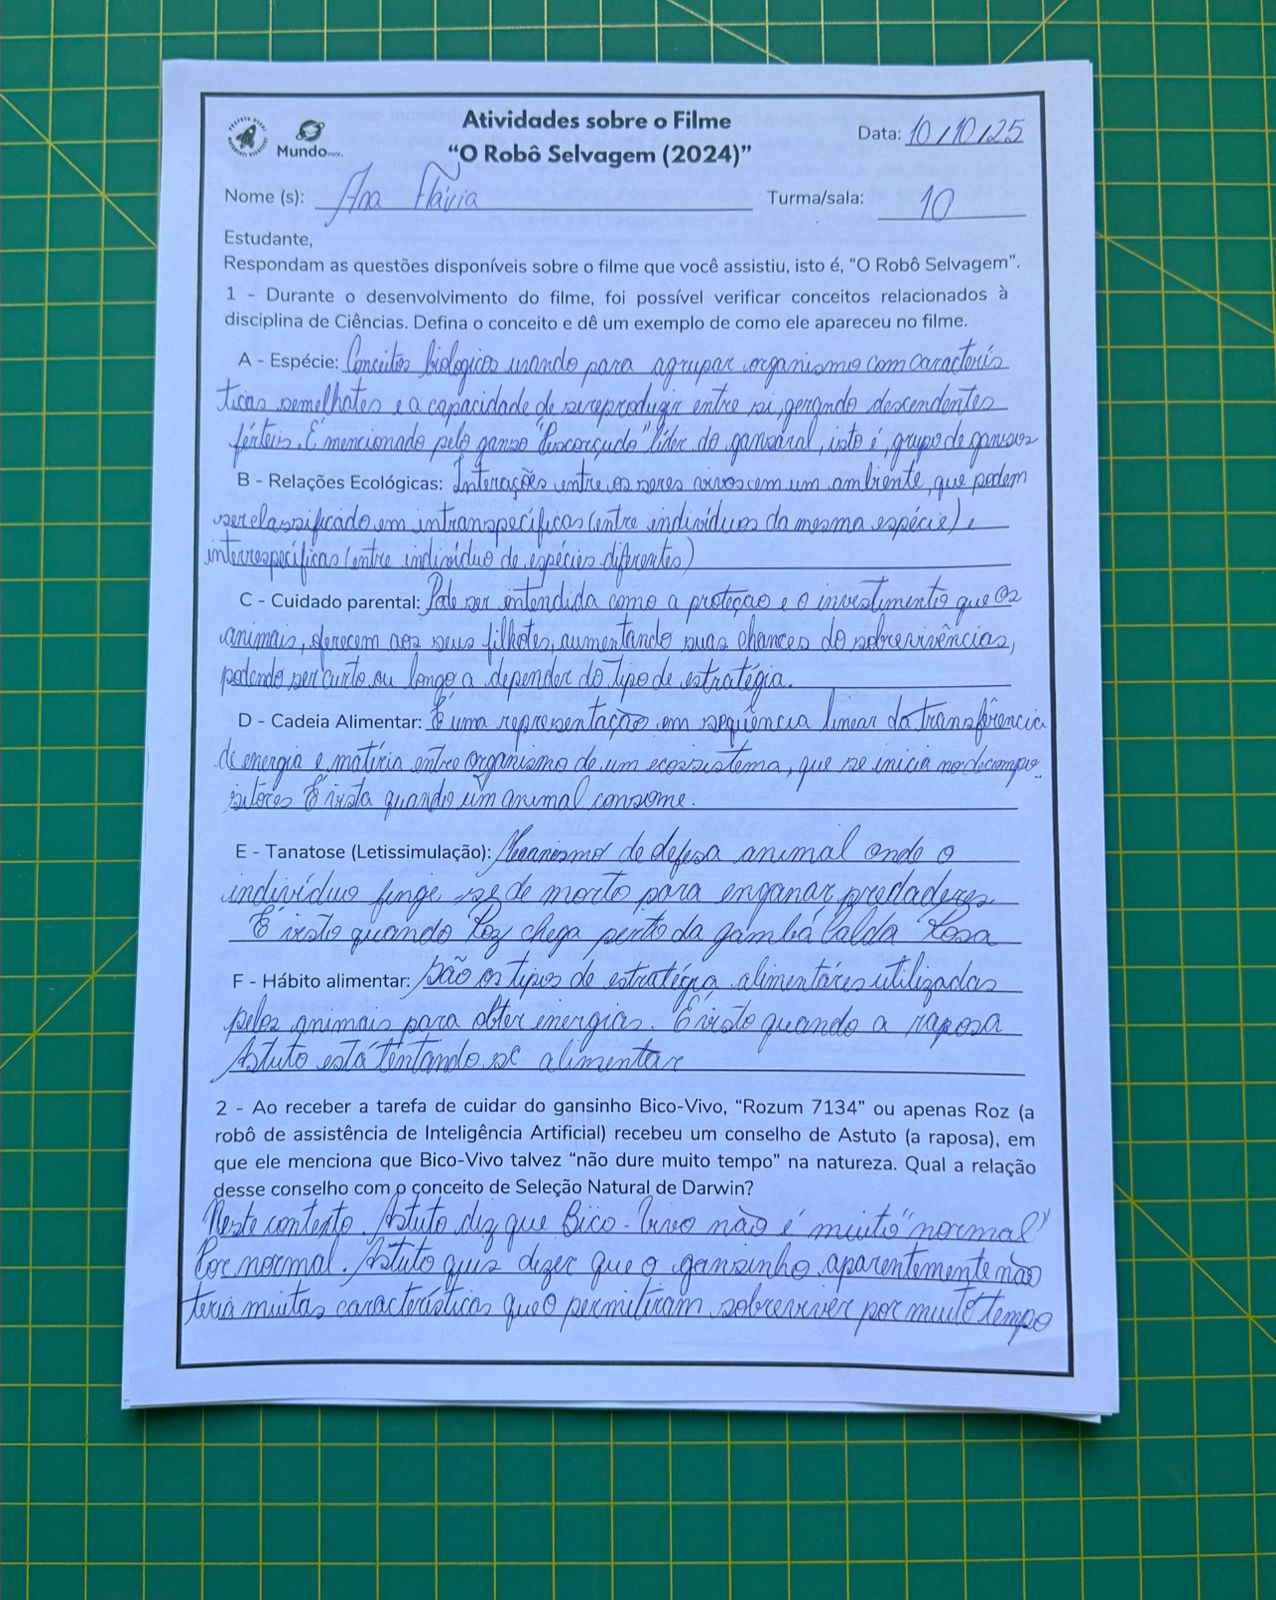 Atividades sobre o Filme
"O Robô Selvagem (2024)"
Data: 10/10/25
Mundo
Nome (s): Ana Flávia
Turma/sala: 10
Estudante,
Respondam as questões disponíveis sobre o filme que você assistiu, isto é, "O Robô Selvagem".
1 - Durante o desenvolvimento do filme, foi possível verificar conceitos relacionados à
disciplina de Ciências. Defina o conceito e dê um exemplo de como ele apareceu no filme.
A - Espécie: Conceitos biologicos usando para agrupar organismo com caracterís
ticas semelhates e a capacidade de se reproduzir entre si, gerando descendentes
férteis. É mencionado pelo ganso "Pescorçudo" líder do gansaral, isto é, grupo de gansos
B - Relações Ecológicas: Interações entre os seres vivos em um ambiente, que podem
ser classificado em intraespecíficas (entre indivíduos da mesma espécie) e
interrespecíficas (entre indivíduo de espécies diferentes)
C - Cuidado parental: Pode ser entendida como a proteção e o investimento que os
animais, oferecem aos seus filhotes, aumentando suas chances do sobrevivências,
podendo ser curto ou longo a depender do tipo de estratégia.
D - Cadeia Alimentar: É uma representação em sequência linear da transferência
de energia e matíria entre organismo de um ecossistema, que se inicia no decompo
sitores É vista quando um animal consome.
E - Tanatose (Letissimulação): Mecanismo de defesa animal onde o
indivíduo finge se de morto para enganar predadores
É visto quando Roz chega perto da gambá Calda Rosa
F - Hábito alimentar: São os tipos de estratégia alimentáres utilizadas
pelos animais para obter energias. É visto quando a raposa
Astuto está tentando se alimentar
2 - Ao receber a tarefa de cuidar do gansinho Bico-Vivo, "Rozum 7134" ou apenas Roz (a
robô de assistência de Inteligência Artificial) recebeu um conselho de Astuto (a raposa), em
que ele menciona que Bico-Vivo talvez "não dure muito tempo" na natureza. Qual a relação
desse conselho com o conceito de Seleção Natural de Darwin?
Neste contexto. Astuto diz que Bico-Vivo não é muito "normal"
Por normal. Astuto quis dizer que o gansinho aparentemente não
teria muitas características que o permitiram sobreviver por muito tempo